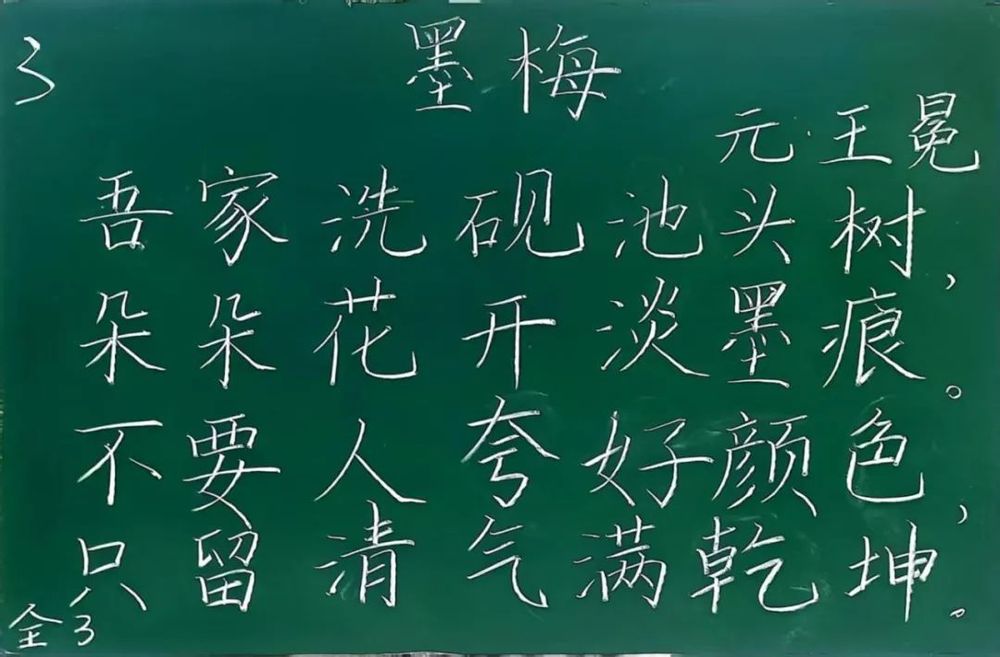 3
墨梅
元·王冕
吾家洗砚池头树,
朵朵花开淡墨痕。
不要人夸好颜色,
只留清气满乾坤。
全3